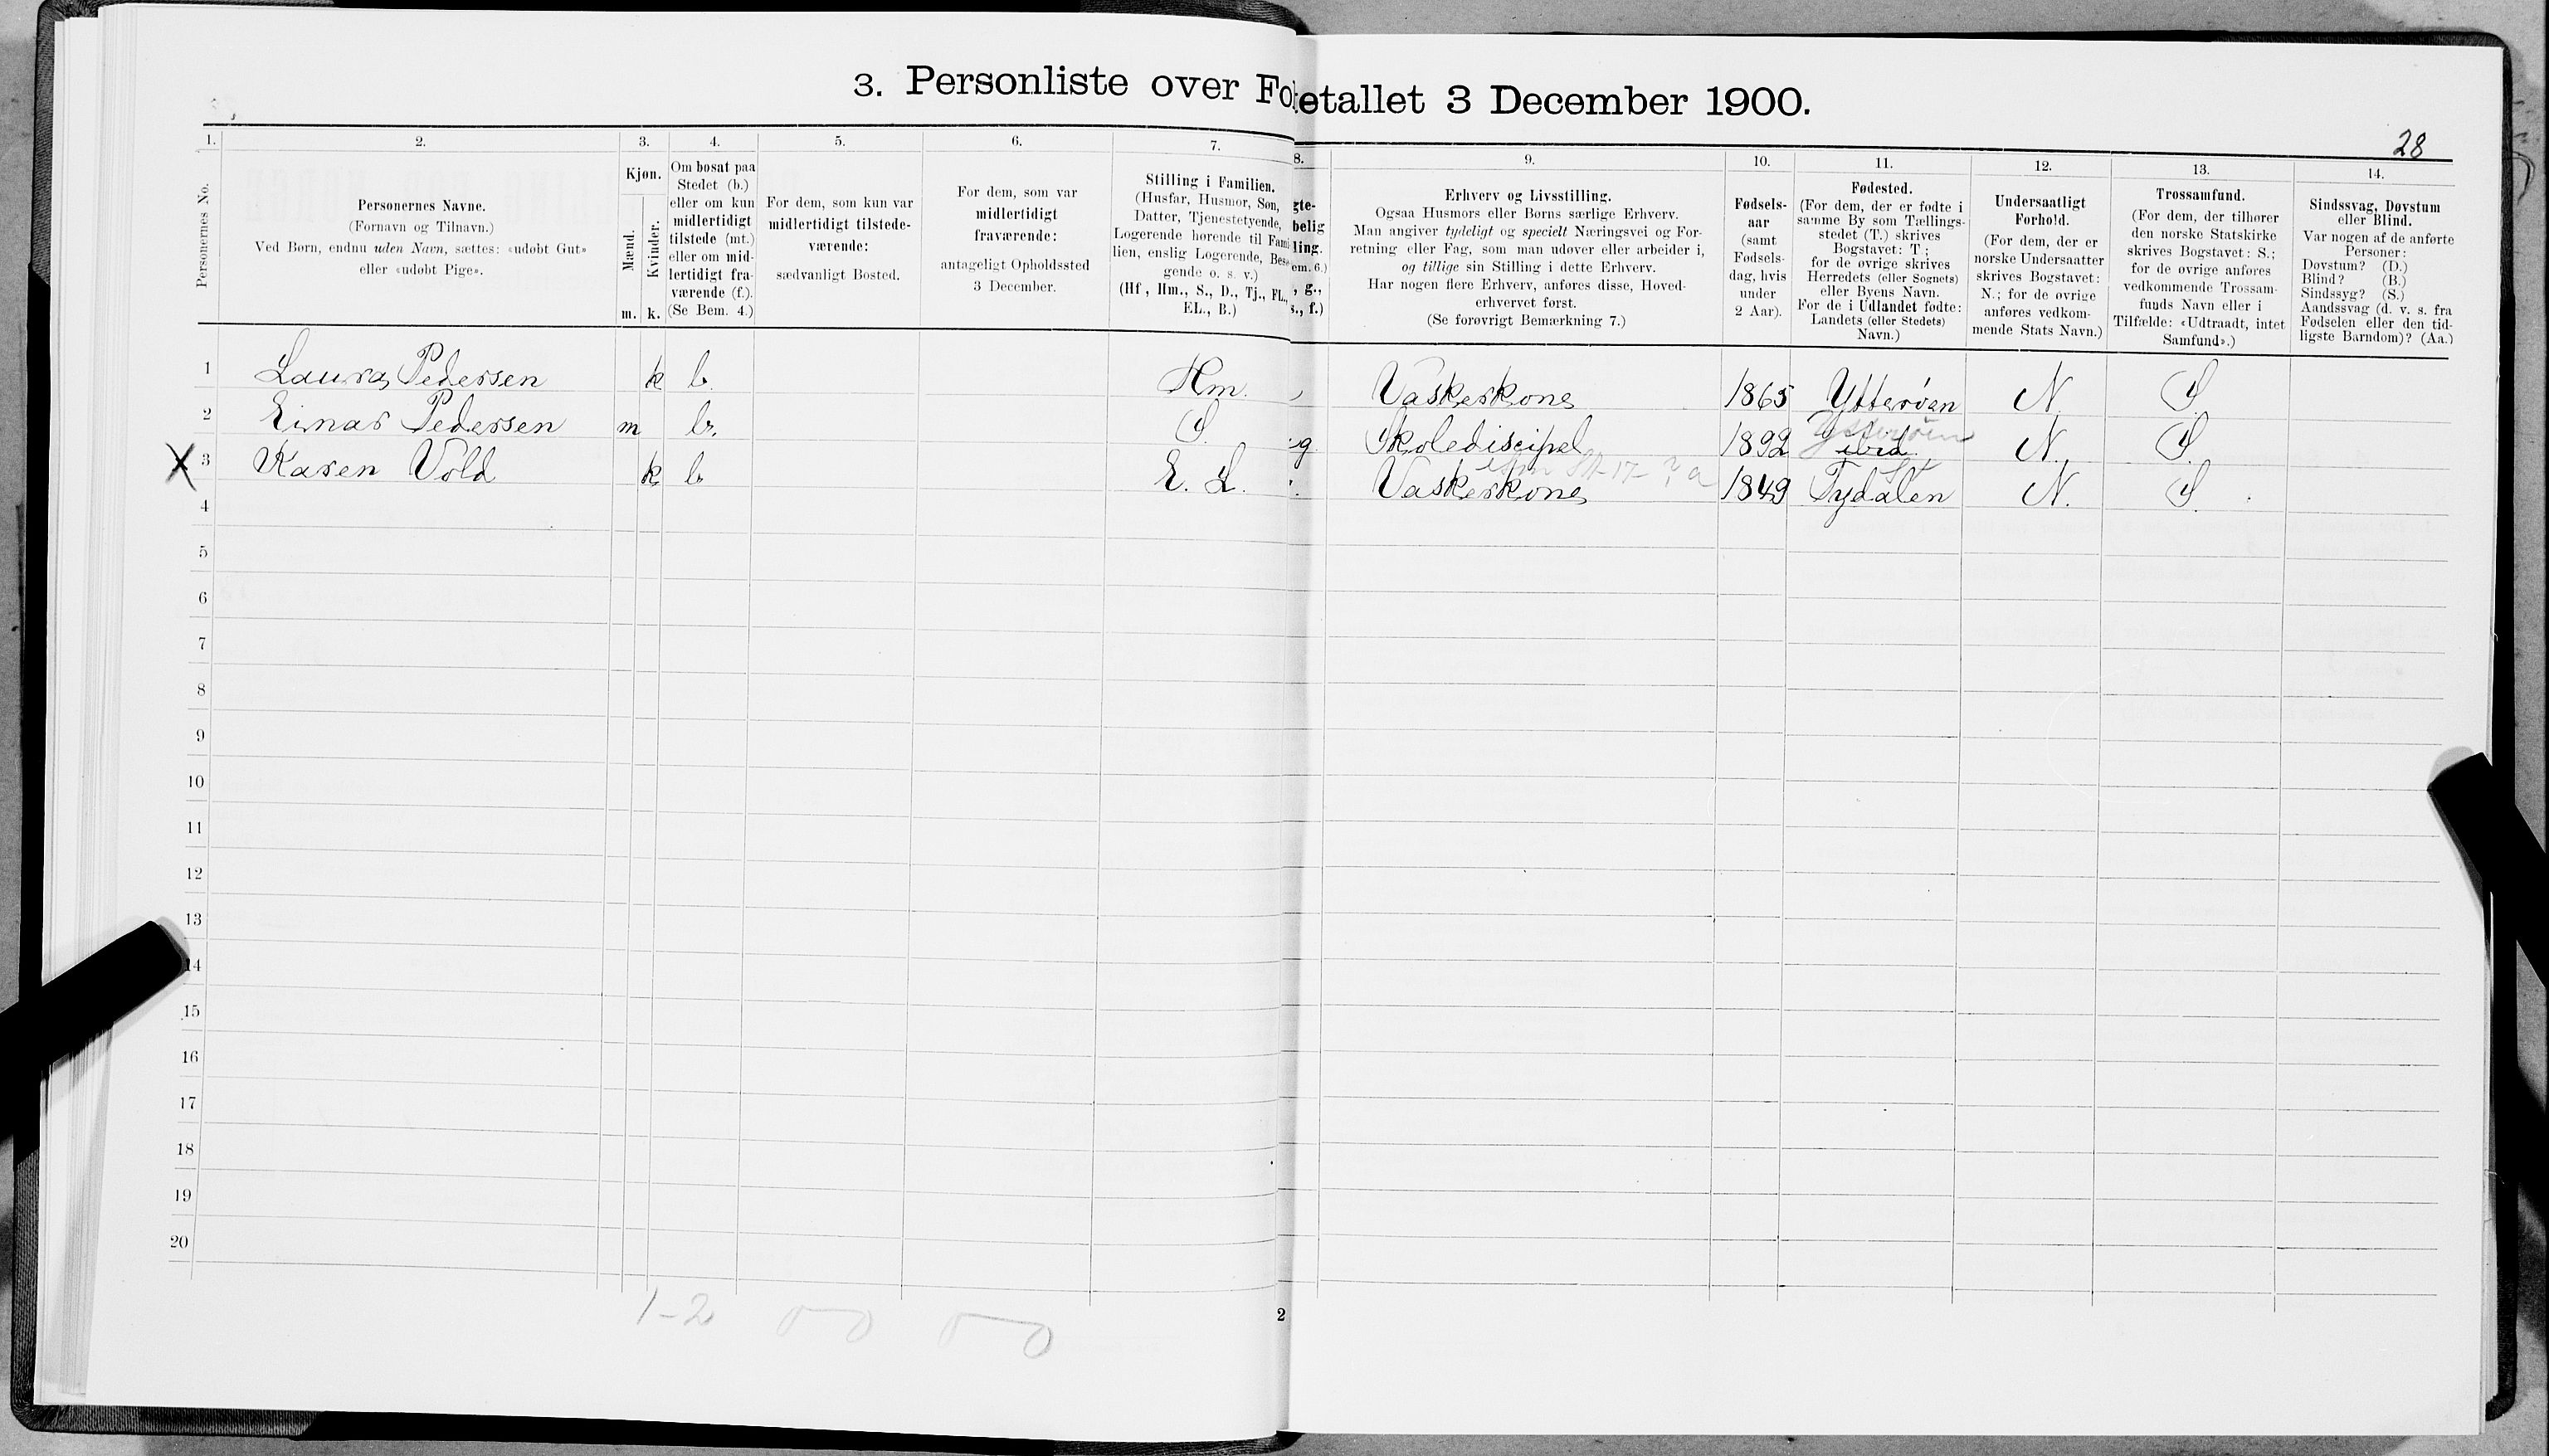 3. Personliste over Fo
ketallet 3 December 1900.
28
1. 2. 3. 4. 5. 6. 7.
8. 9. 10. 11. 12. 13. 14.
Personernes No.
Personernes Navne.
(Fornavn og Tilnavn.)
Ved Børn, endnu uden Navn, sættes: «udøbt Gut»
eller «udøbt Pige».
Kjøn.
Mænd.
Kvinder.
m. k.
Om bosat paa
Stedet (b.)
eller om kun
midlertidigt
tilstede (mt.)
eller om mid-
lertidigt fra-
værende (f.).
(Se Bem. 4.)
For dem, som kun var
midlertidigt tilstede-
værende:
sædvanligt Bosted.
For dem, som var
midlertidigt
fraværende:
antageligt Opholdssted
3 December.
Stilling i Familien.
(Husfar, Husmor, Søn,
Datter, Tjenestetyende,
Logerende hørende til Fami
lien, enslig Logerende, Besø
gende o. s. v.)
(Hf., Hm., S., D., Tj., FL.,
EL., B.)
gte-
belig
ling.
em. 6.)
, g.,
s., f.)
Erhverv og Livsstilling.
Ogsaa Husmors eller Børns særlige Erhverv.
Man angiver tydeligt og specielt Næringsvei og For-
retning eller Fag, som man udøver eller arbeider i,
og tillige sin Stilling i dette Erhverv.
Har nogen flere Erhverv, anføres disse, Hoved-
erhvervet først.
(Se forøvrigt Bemærkning 7.)
Fødsels-
aar
(samt
Fødsels-
dag, hvis
under
2 Aar).
Fødested.
(For dem, der er fødte i
samme By som Tællings-
stedet (T.) skrives
Bogstavet: T;
for de øvrige skrives
Herredets (eller Sognets)
eller Byens Navn.
For de i Udlandet fødte:
Landets (eller Stedets)
Navn.)
Undersaatligt
Forhold.
(For dem, der er
norske Undersaatter
skrives Bogstavet:
N.; for de øvrige
anføres vedkom-
mende Stats Navn.)
Trossamfund.
(For dem, der tilhører
den norske Statskirke
skrives Bogstavet: S.;
for de øvrige anføres
vedkommende Trossam-
funds Navn eller i
Tilfælde: «Udtraadt, intet
Samfund».)
Sindssvag, Døvstum
eller Blind.
Var nogen af de anførte
Personer:
Døvstum? (D.)
Blind? (B.)
Sindssyg? (S.)
Aandssvag (d. v. s. fra
Fødselen eller den tid-
ligste Barndom)? (Aa.)
1 Laura Pedersen k b. Hm. Vaskerkone 1865 Ytterøen N. S.
2 Einar Pedersen m b. S. g. Skolediscipel 1892 Ytterøen ibid. N. S.
X 3 Karen Vold k b E. L. Vaskerkone 1849 Tydalen N. S.
4
5
6
7
8
9
10
11
12
13
14
15
16
17
18
19
20
1-2 0 0 0 0
2